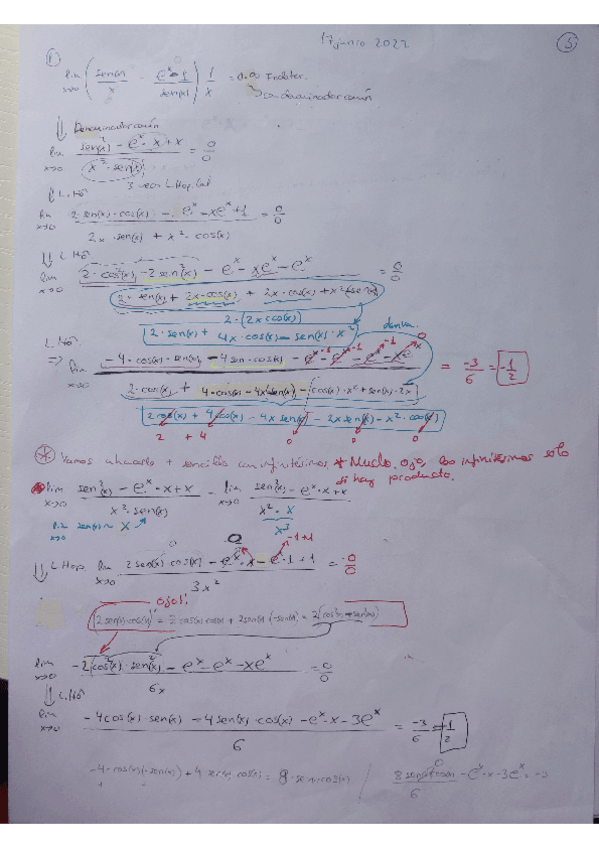 17 junio 2022
5
①
lim x→0 ( sen(x)/x - (e^x - 1)/sen(x) ) 1/x = 0·∞ Indeter.
↳ con denominador común
⇓ Denominador común
lim x→0 (sen²(x) - e^x · x + x)/(x² · sen(x)) = 0/0
⇓ L. Hô 3 veces L'Hopital
lim x→0 (2·sen(x)·cos(x) - e^x - xe^x + 1)/(2x · sen(x) + x² · cos(x)) = 0/0
⇓ L. Hô
lim x→0 (2·cos²(x) - 2sen²(x) - e^x - xe^x - e^x) = 0/0
2·sen(x) + 2x·cos(x) + 2x·cos(x) + x²(-sen(x))
2·(2x cos(x))
2·sen(x) + 4x·cos(x) - sen(x)·x²
deriva.
L. Hô.
⇒ lim x→0 (-4·cos(x)·sen(x) - 4sen·cos(x) - e^x - e^x - e^x - xe^x) = -3/6 = -1/2
2·cos(x) + 4·cos(x) - 4x(sen(x)) - (cos(x)·x² + sen(x)·2x)
2cos(x) + 4cos(x) - 4x sen(x) - 2x sen(x) - x²·cos(x)
2 + 4 0 0 0
* Vamos a hacerlo + sencillo con infinitésimos. * Mucho ojo, los infinitésimos solo
si hay producto.
lim x→0 (sen²(x) - e^x · x + x)/(x² · sen(x)) = lim x→0 (sen²(x) - e^x · x + x)/(x² · x)
lim x→0 sen(x) ~ x x³
0 -1+1
⇓ L Hop. lim x→0 (2sen(x) cos(x) - e^x · x - e^x · 1 + 1)/(3x²) = 0/0
ojo!
(2 sen(x)·cos(x))' = 2 cos(x)·cos(x) + 2sen(x)·(-sen(x)) = 2(cos²(x) - sen²(x))
lim x→0 (-2 cos²(x) · sen²(x) - e^x - e^x - xe^x)/(6x) = 0/0
⇓ L. Hô
lim x→0 (-4cos(x)·sen(x) - 4sen(x)·cos(x) - e^x · x - 3e^x)/6 = -3/6 = -1/2